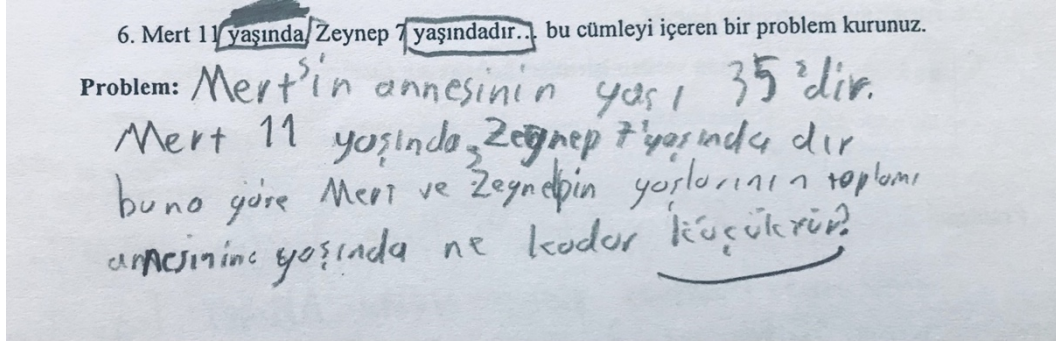 6. Mert 11 yaşında, Zeynep 7 yaşındadır... bu cümleyi içeren bir problem kurunuz.
Problem: Mert'in annesinin yaşı 35'dir.
Mert 11 yaşında, Zeynep 7 yaşındadır
buna göre Mert ve Zeynepin yaşlarının toplamı
annesinine yaşında ne kadar küçüktür?